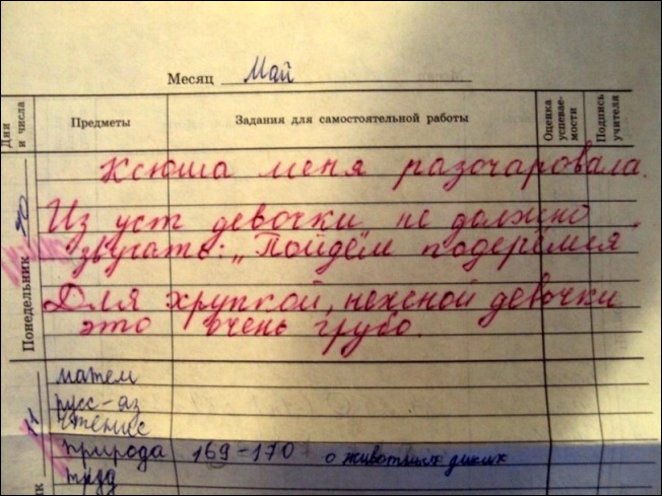 Месяц Май
Дни и числа
Предметы
Задания для самостоятельной работы
Оценка успевае- мости
Подпись учителя
Понедельник
Ксюша меня разочаровала.
Из уст девочки не должно
звучать: „Пойдём подерёмся
Для хрупкой, нежной девочки
это очень грубо.
11
матем
русс-яз
чтение
природа 169-170 о животных диких
труд